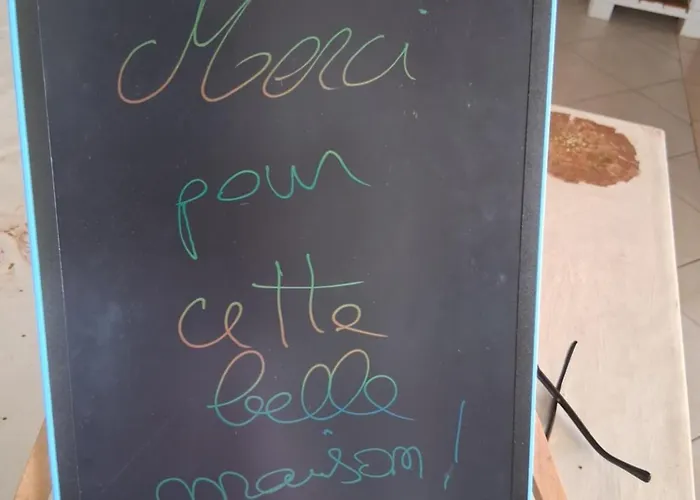 Merci
pour
cette
belle
maison !